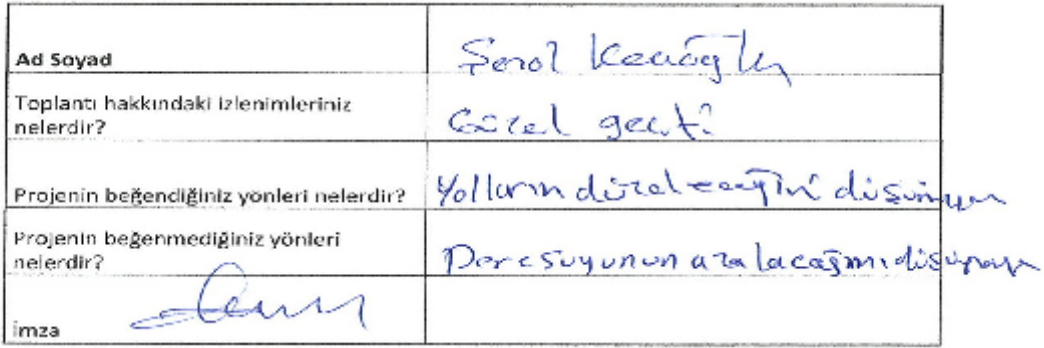 Ad Soyad Şenol
Toplantı hakkındaki izlenimleriniz
nelerdir?
Güzel geçti
Projenin beğendiğiniz yönleri nelerdir? Yolların düzeleceğini düşünüyorum
Projenin beğenmediğiniz yönleri
nelerdir?
Dere suyunun azalacağını düşünüyorum
imza